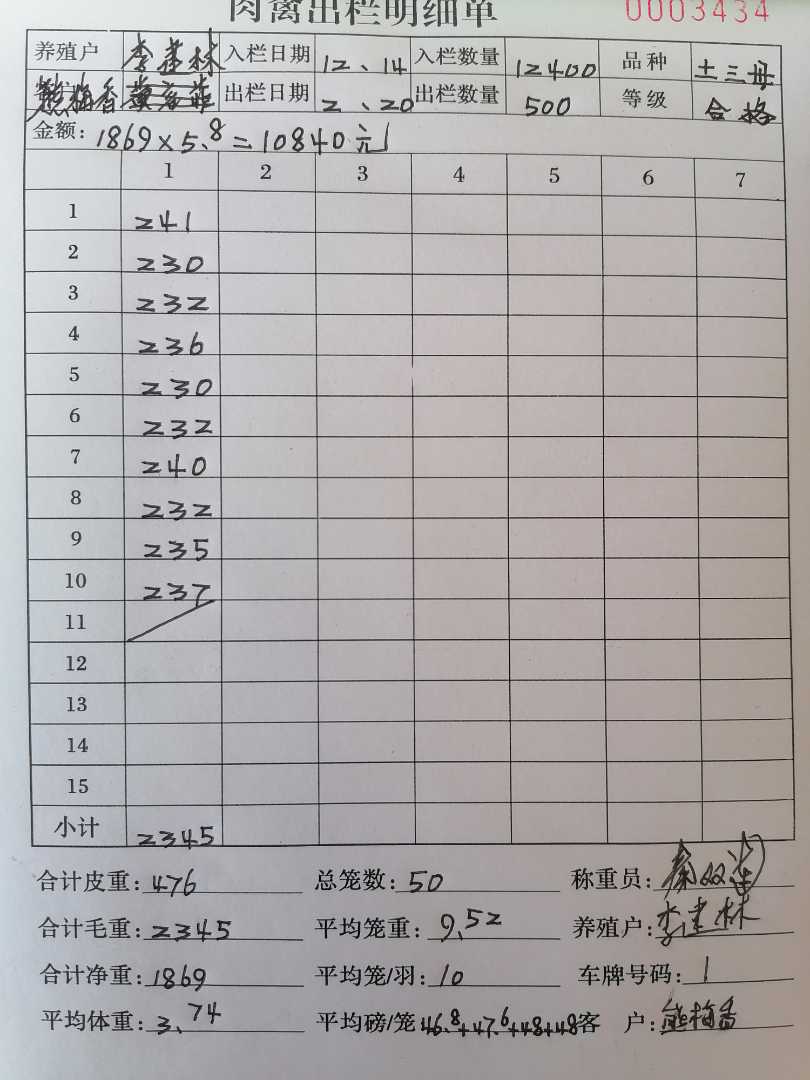 肉禽出栏明细单 0003434
养殖户 李建林 入栏日期 12、14 入栏数量 12400 品种 土三母
客户 熊梅香 出栏日期 2、20 出栏数量 500 等级 合格
金额: 1869×5.8=10840元
1 2 3 4 5 6 7
1 241
2 230
3 232
4 236
5 230
6 232
7 240
8 232
9 235
10 237
11
12
13
14
15
小计 2345
合计皮重: 476 总笼数: 50 称重员:
合计毛重: 2345 平均笼重: 9.52 养殖户: 李建林
合计净重: 1869 平均笼/羽: 10 车牌号码: 1
平均体重: 3.74 平均磅/笼: 46.8+47.6+48+48 客 户: 熊梅香